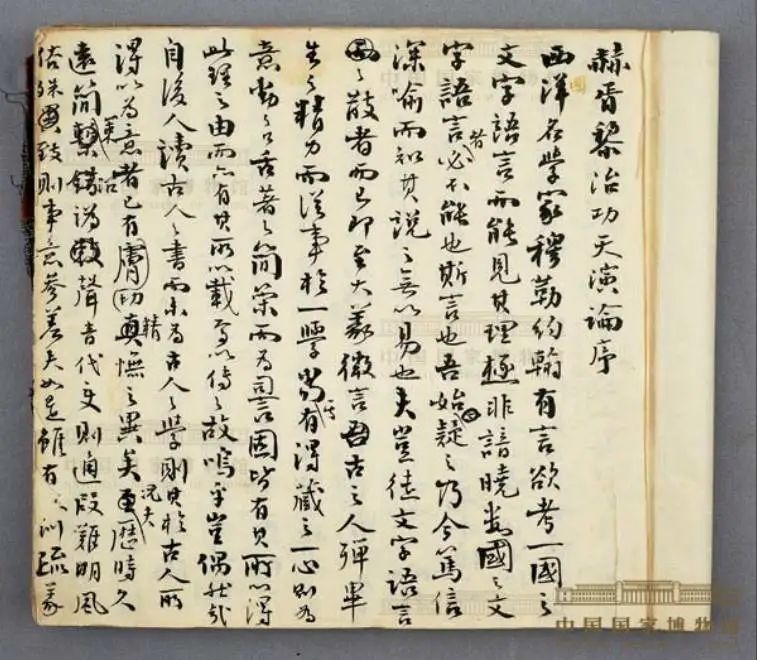 赫胥黎治功天演論序
西洋名學家穆勒約翰有言欲考一國之
文字語言而能見其理極非諳曉數國之文
字語言者必不能也斯言也吾始疑之乃今篤信
深喻而知其說之無以易也夫豈徒文字語言
之散者而已即至大義微言古之人殫畢
生之精力而從事於一學當有得藏之一心則為
意動之口舌著之簡策而為詞固皆有其所以得
此理之由而亦有其所以載焉以傳之故嗚乎豈偶然哉
自後人讀古人之書而未為古人之學則其於古人所
得以為意者已有膚功精真憮之異矣況夫更歷時久
遠簡錯譌聲音代變則通叚難明風
俗殊異致則事意參差夫如是雖有訓疏義
中国国家博物馆